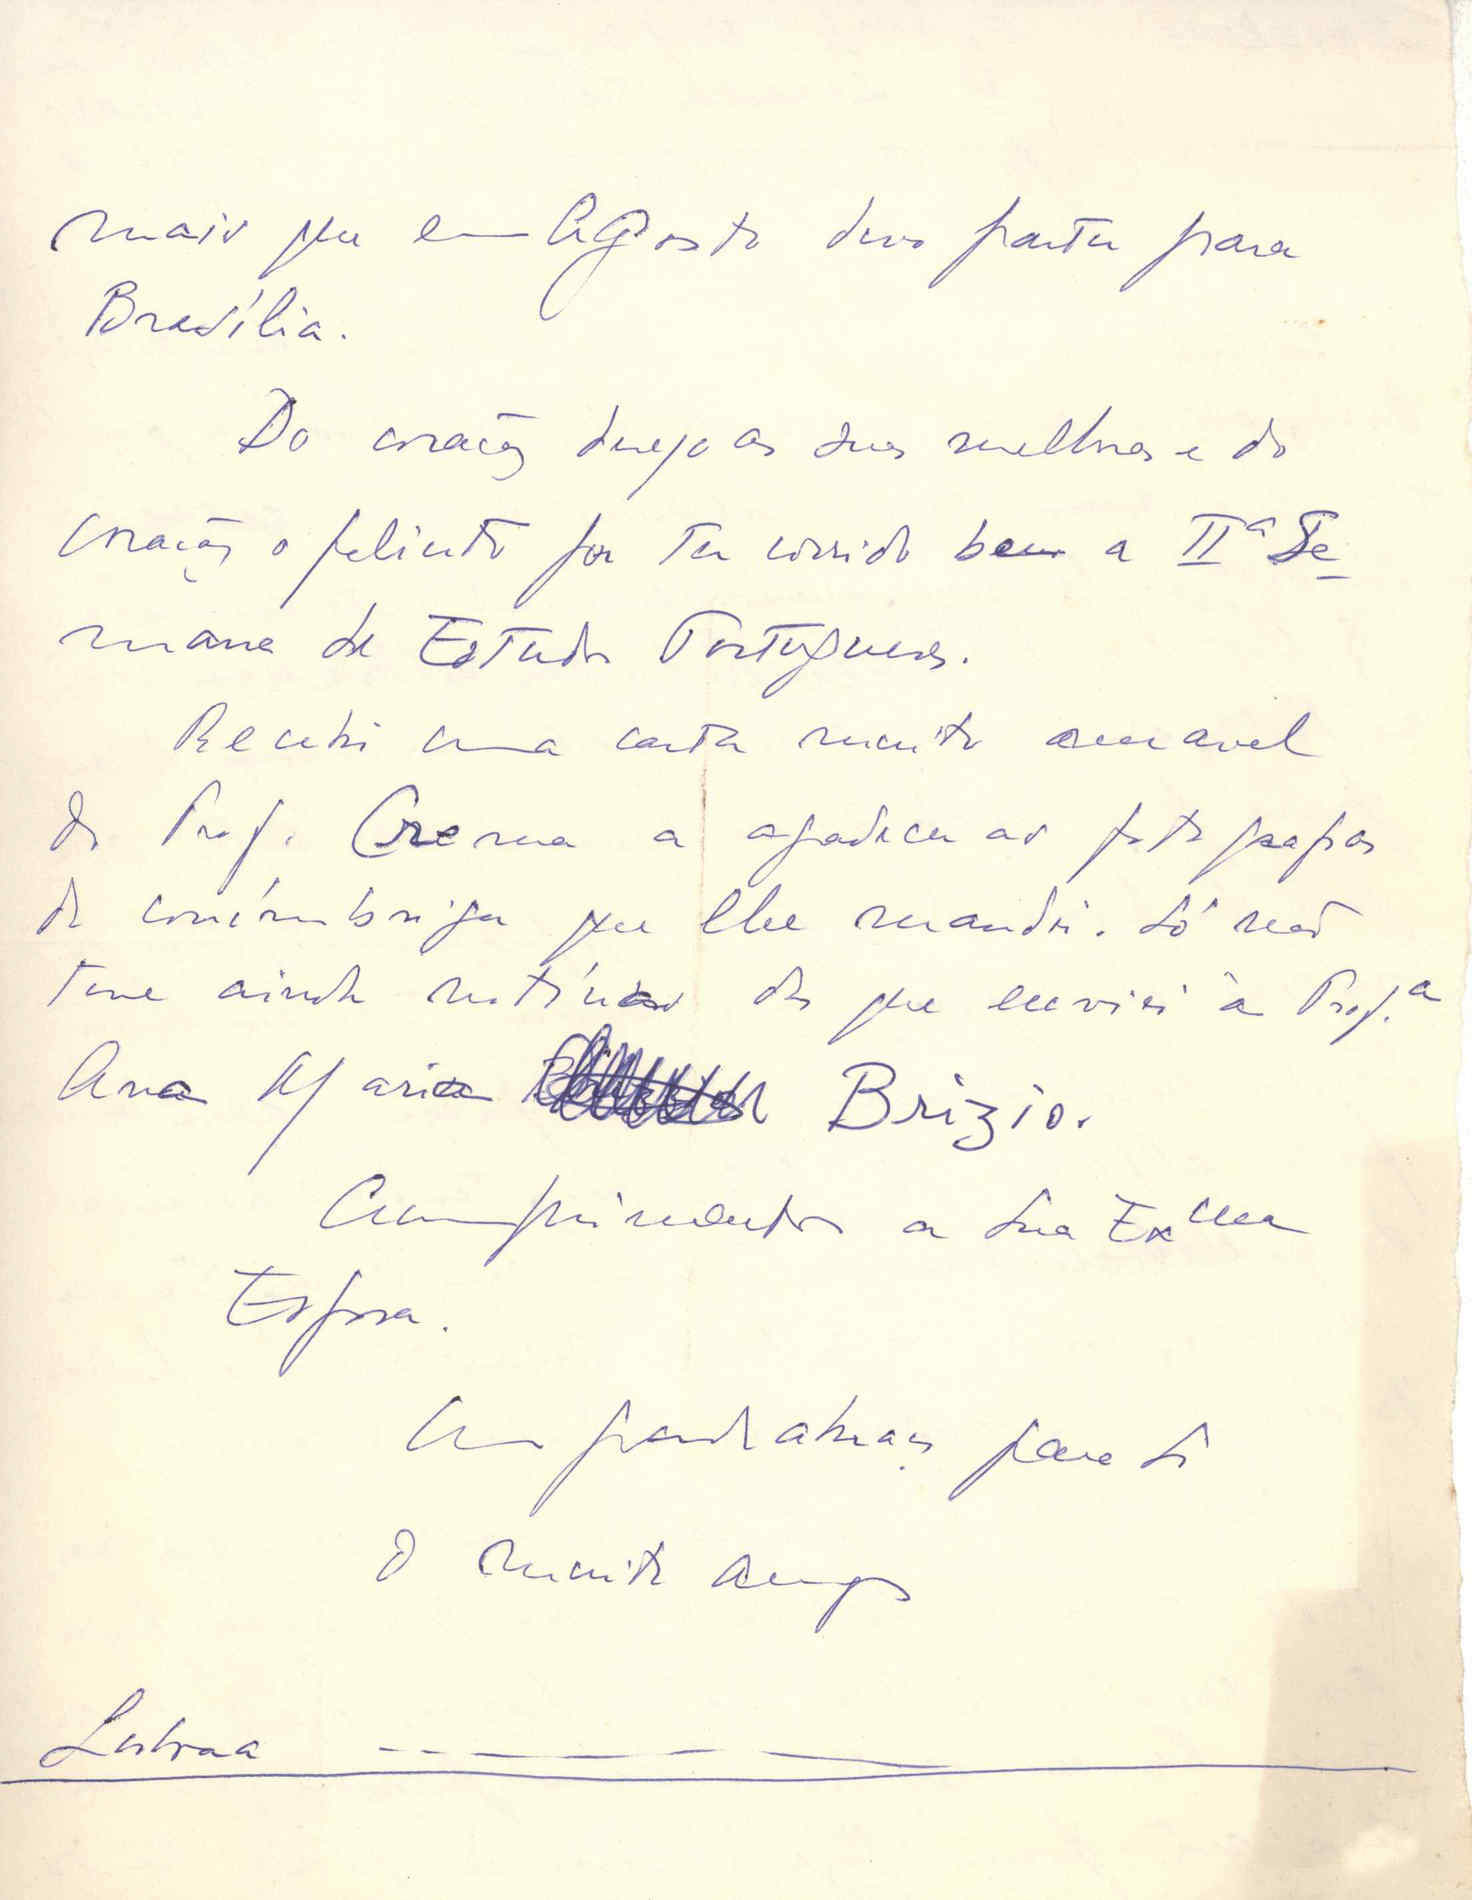 mais que em Agosto devo partir para
Brasília.
Do coração desejo as suas melhoras e do
coração o felicito por ter corrido bem a IIª Se-
mana de Estudos Portugueses.
Recebi uma carta muito amavel
do Prof. Crema a agradecer as fotografias
de conímbriga que lhe mandei. Só não
tive ainda notícias das que enviei à Prof.ª
Ana Maria Brizio.
Cumprimentos a Sua Exma
Esposa.
Um grande abraço para si
O muito amigo
Lisboa